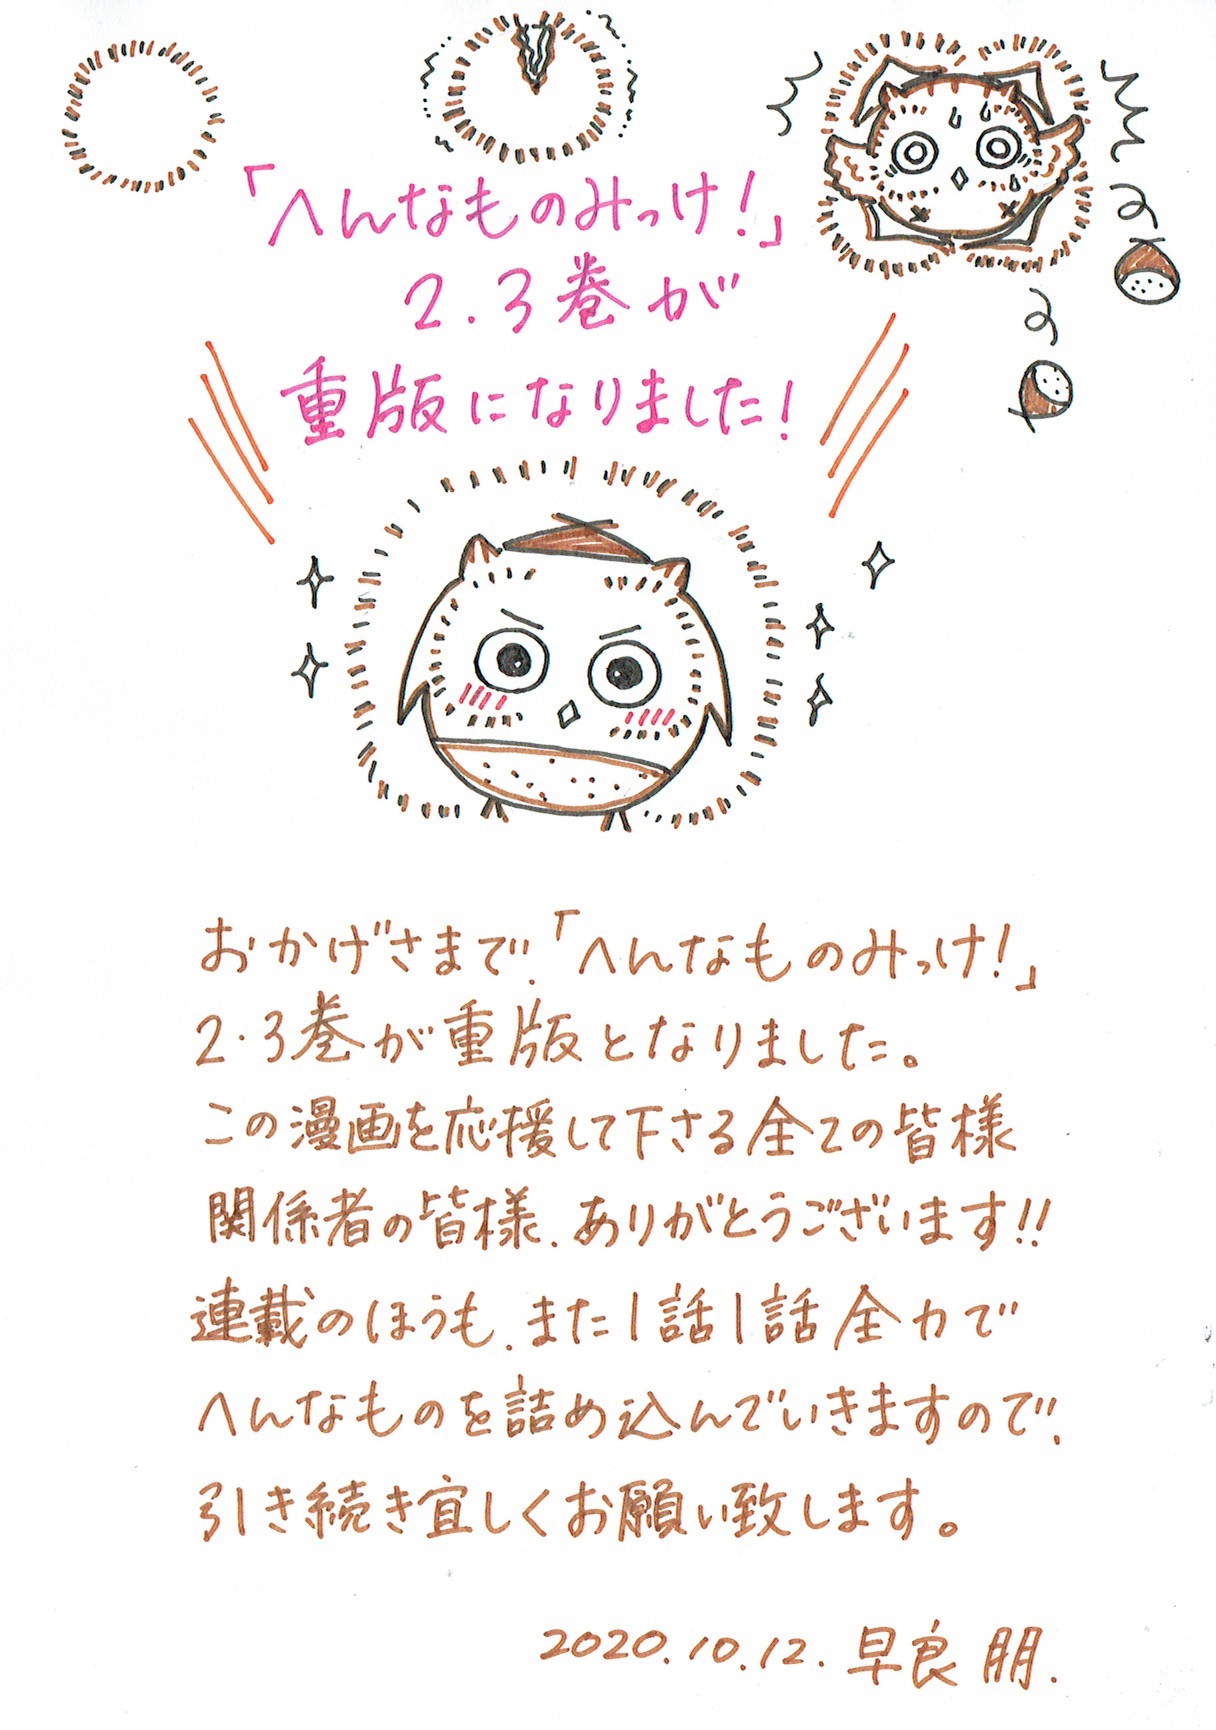 「へんなものみっけ！」
2.3巻が
重版になりました！
おかげさまで、「へんなものみっけ！」
2・3巻が重版となりました。
この漫画を応援して下さる全ての皆様
関係者の皆様、ありがとうございます!!
連載のほうも、また1話1話全力で
へんなものを詰め込んでいきますので、
引き続き宜しくお願い致します。
2020.10.12. 早良朋.